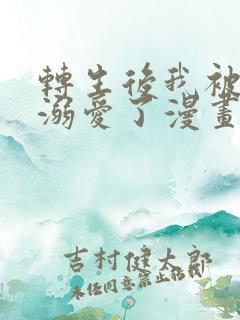 轉生後我被
溺愛了漫畫
吉村健太郎
未经同意禁止转载